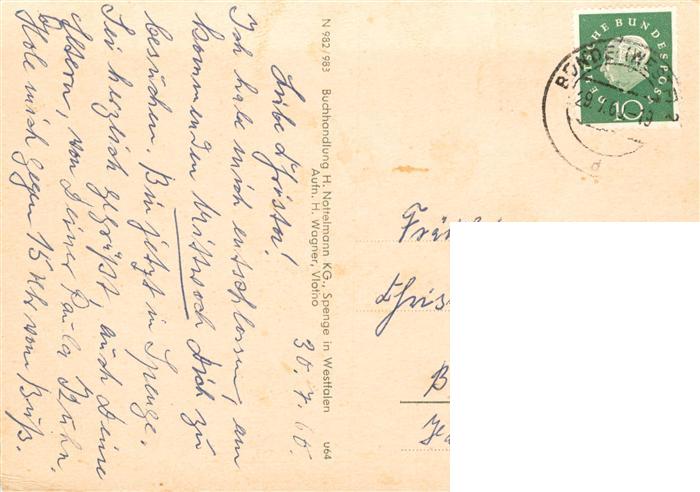 30.4.60.
Liebe Christa!
Ich habe mich entschlossen, am
kommenden Mittwoch Dich zu
besuchen. Bin jetzt in Spenge.
Sei herzlich gegrüßt, auch Deine
Eltern, von Deiner Paula Kuhn.
Hole mich gegen 15 Uhr vom Buß.
N 982/983 Buchhandlung H. Nottelmann KG., Spenge in Westfalen u64
Aufn. H. Wagner, Vlotho
DEUTSCHE BUNDESPOST
10
BÜNDE (WESTF)
29.4.60-19
d
Chris
B